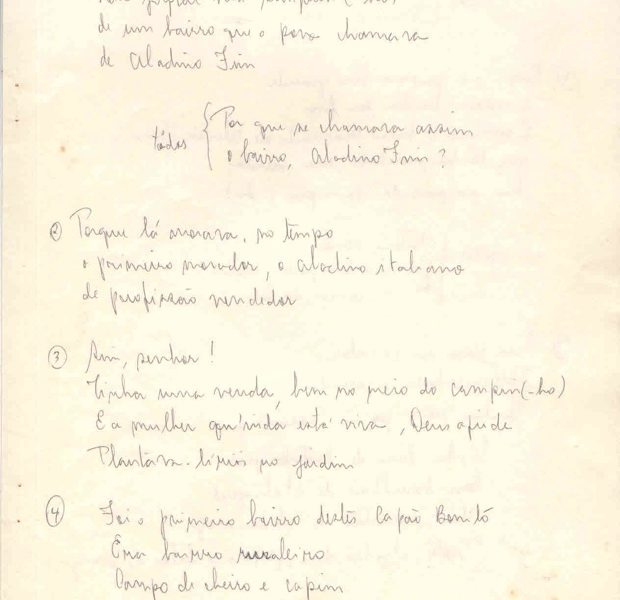 de um bairro que o povo chamava
de Aladino Fim
todos { Por que se chamava assim
o bairro, Aladino Fim?
② Porque lá morava, no tempo
o primeiro morador, o Aladino italiano
de profissão vendedor
③ Sim, senhor!
Tinha uma venda, bem no meio do campin(-ho)
E a mulher qu'inda está viva, Deus ajude
Plantava lírios no jardim
④ Foi o primeiro bairro deste Capão Bonito
Era bairro ruraleiro
Campo de cheiro e capim